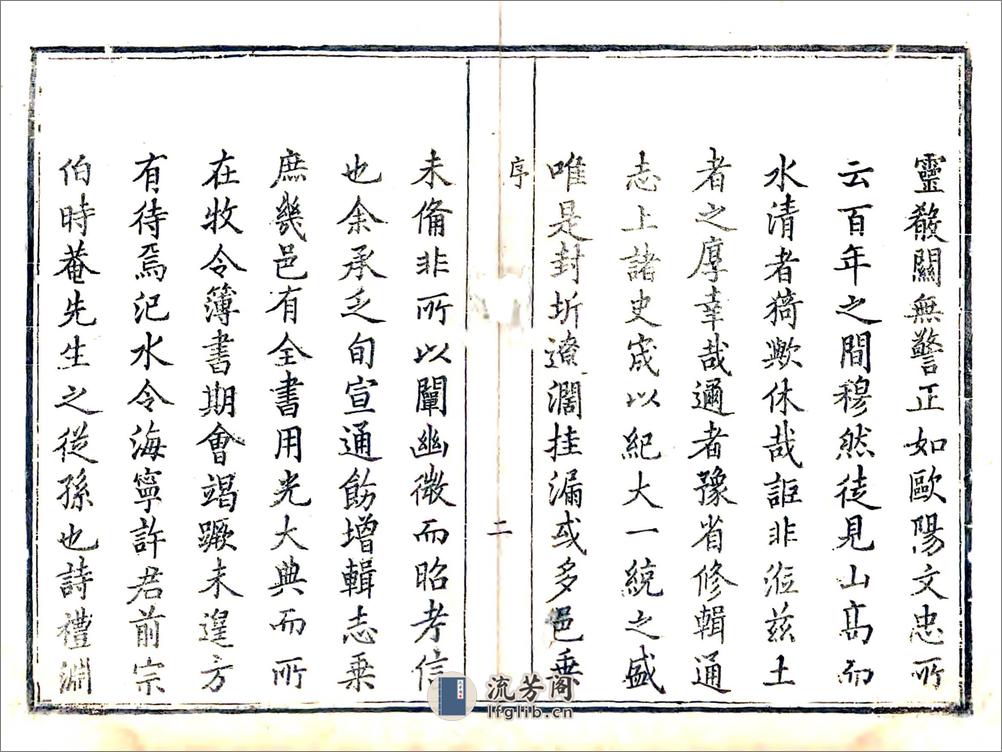 靈發關無警正如歐陽文忠所
云百年之間穆然徒見山高而
水清者猗歟休哉詎非涖茲土
者之厚幸哉邇者豫省修輯通
志上諸史宬以紀大一統之盛
唯是封圻遼濶挂漏或多邑乗
序
二
未俻非所以闡幽微而昭考信
也余承乏旬宣通飭增輯志乗
庶幾邑有全書用光大典而所
在牧令簿書期會竭蹶未遑方
有待焉汜水令海寧許君前宗
伯時菴先生之從孫也詩禮淵
流芳阁
lfglib.cn